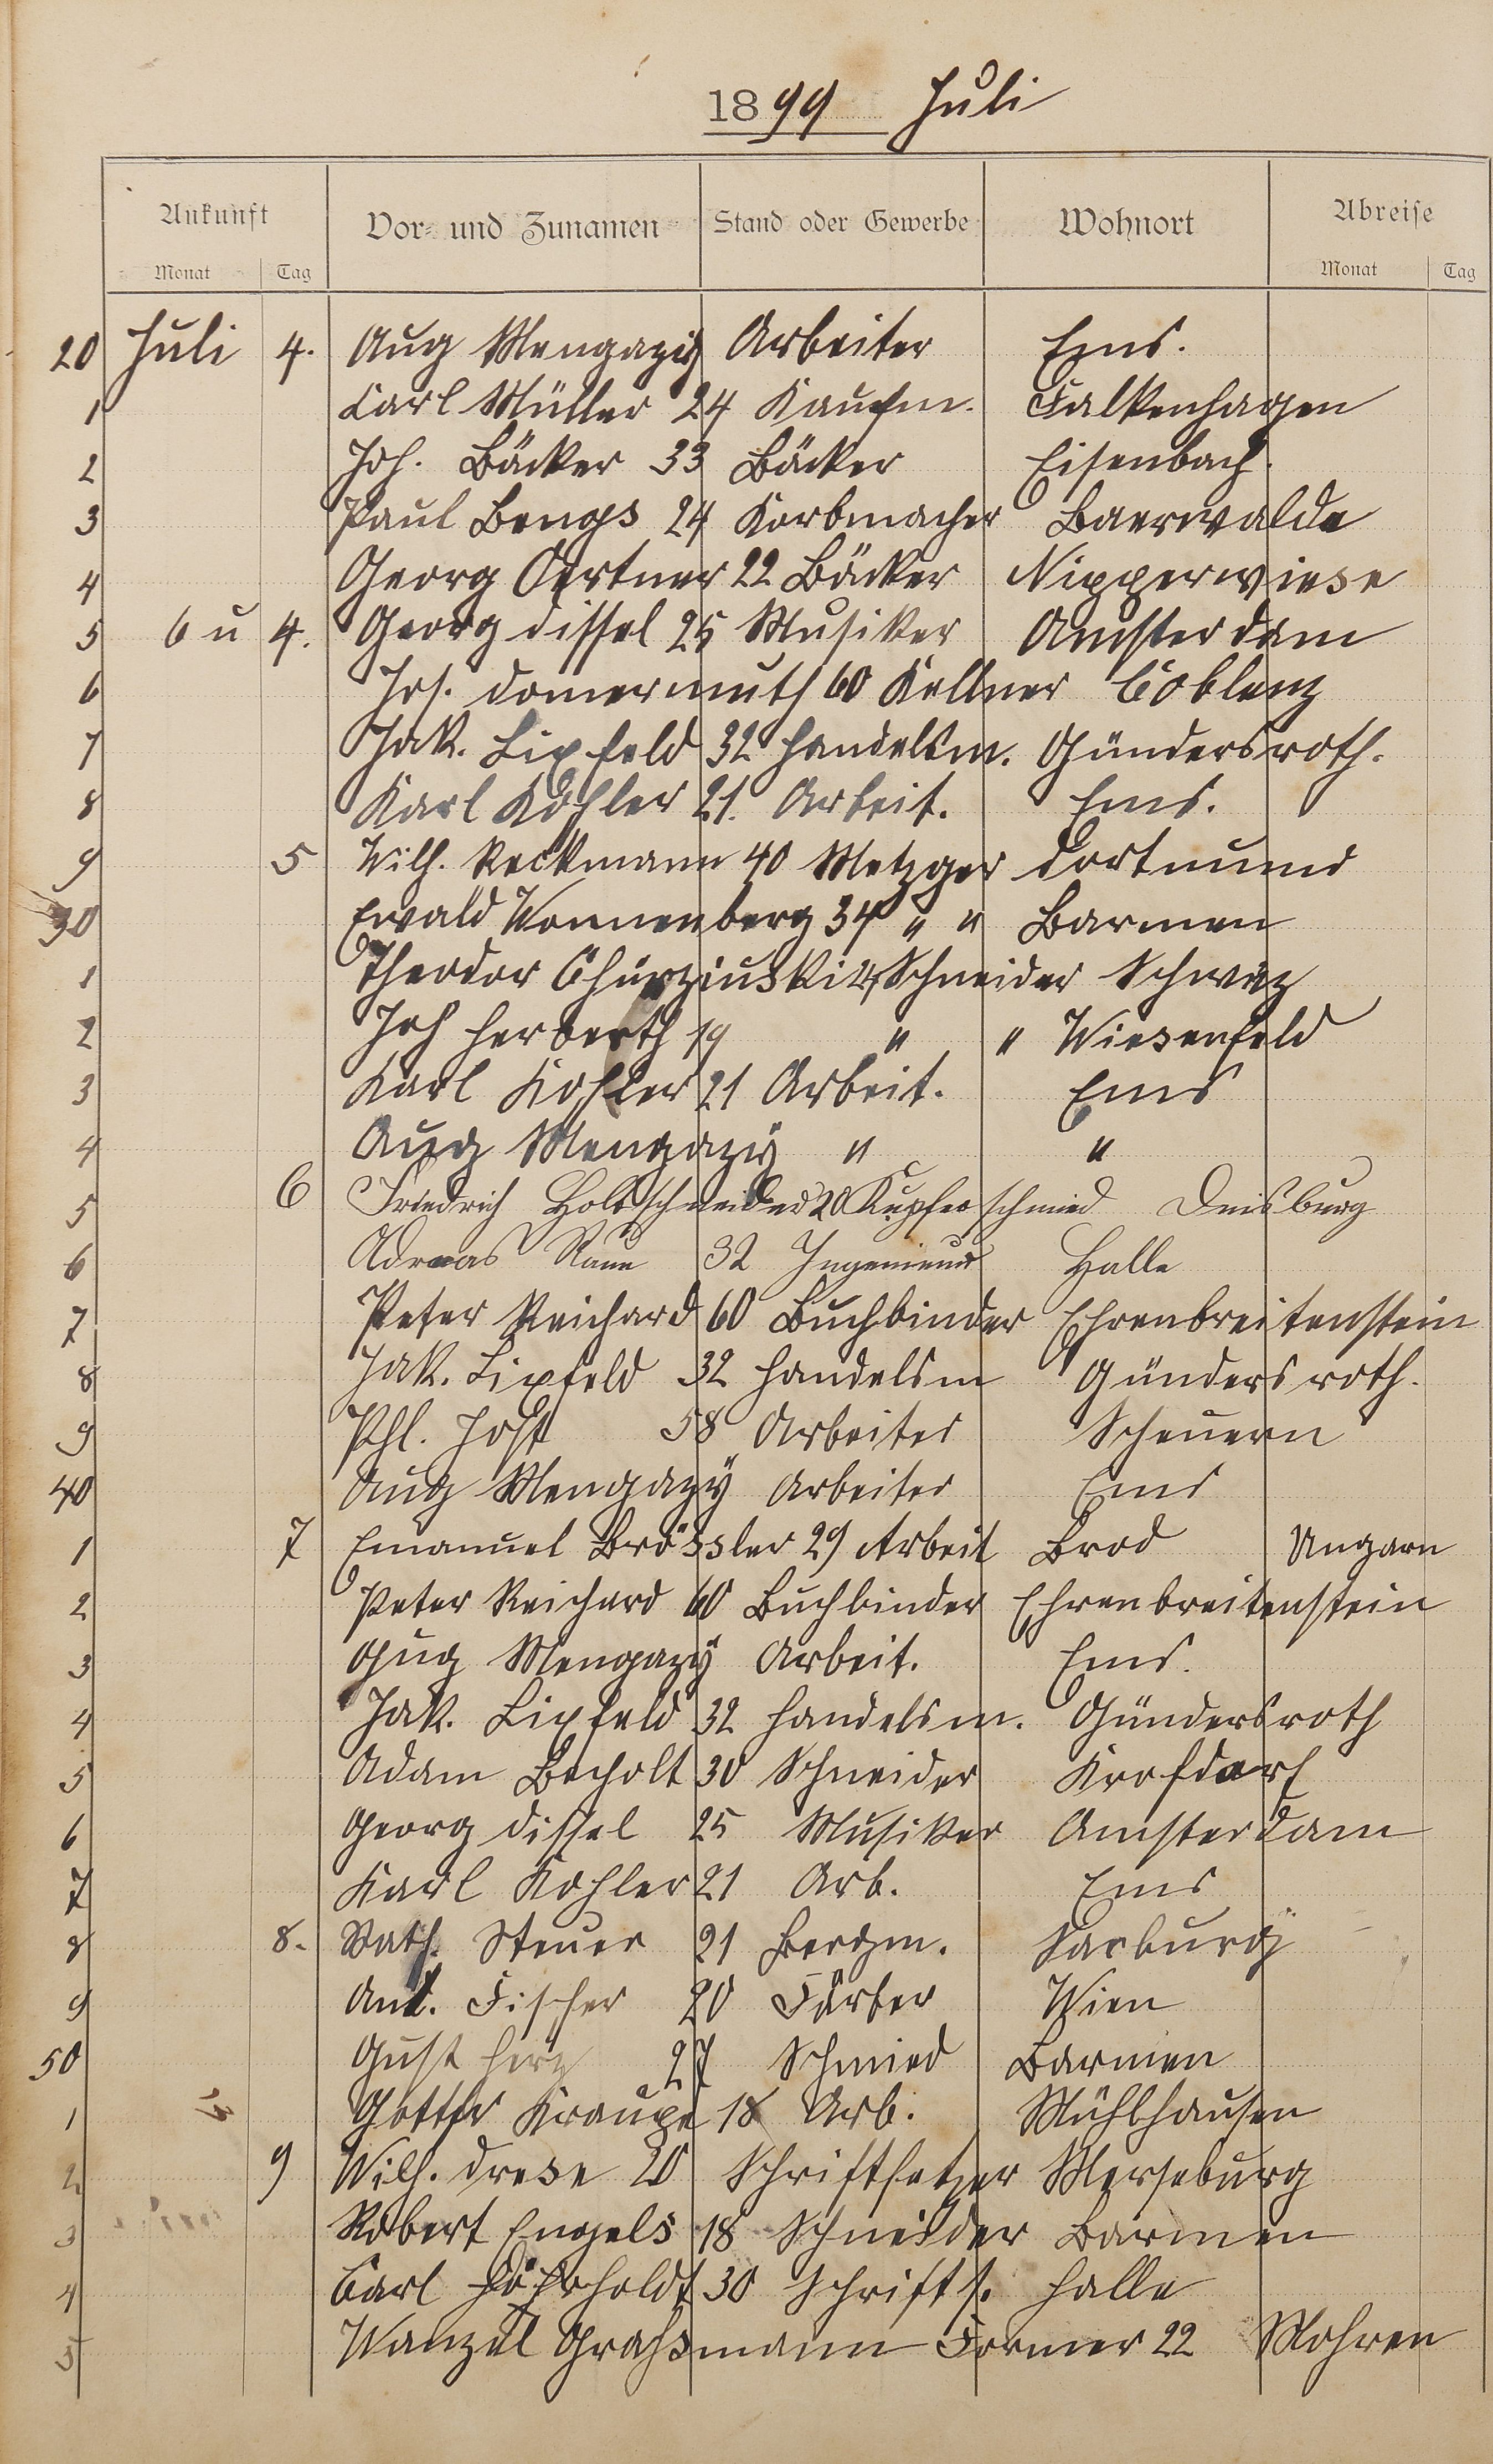 1899 Juli
Ankunft Vor- und Zunamen Stand oder Gewerbe Wohnort Abreise
Monat Tag Monat Tag
20 Juli 4. Aug Mengazÿ Arbeiter Ems.
1 Carl Müller 24 Kaufm. Falkenhagen
2 Joh. Bäcker 33 Bäcker Eisenbach.
3 Paul Bengs 24 Korbmacher Baerwalde
4 Georg Oertner 22 Bäcker Nipperwiese
5 6 u 4. Georg Dissel 25 Musiker Amsterdam
6 Jos. Domermuth 60 Kellner Coblenz
7 Jak. Lipfeld 32 Handelsm. Gündersroth.
8 Karl Köhler 21. Arbeit. Ems.
9 5 Wilh. Reckmann 40 Metzger Dortmund
30 Ewald Wonnenberg 34 " " Barmen
1 Theodor 24 Schneider Schwez
2 Joh Herberth 19 " " Wiesenfeld
3 Karl Köhler 21 Arbeit. Ems
4 Aug Mengazÿ " "
5 6 Friedrich Holdschneider 20 Kupferschmied Duisburg
6 Adreas Raue 32 Ingenieur Halle
7 Peter Reichard 60 Buchbinder Ehrenbreitenstein
8 Jak. Lipfeld 32 Handelsm Gündersroth.
9 Phl. Jost 58 Arbeiter Scheuern
40 Aug Mengazÿ Arbeiter Ems
1 7 Emanuel Brössler 29 Arbeit Brod Ungarn
2 Peter Reichard 60 Buchbinder Ehrenbreitenstein
3 Aug Mengazÿ Arbeit. Ems.
4 Jak. Lipfeld 32 Handelsm. Gündersroth
5 Adam Becholt 30 Schneider Krofdorf
6 Georg Dissel 25 Musiker Amsterdam
7 Karl Köhler 21 Arb. Ems
8 8. Math. Steuer 21 Bergm. Sarburg
9 Ant. Fischer 20 Färber Wien
50 Gust Herz 27 Schmied Barmen
1 Gottfr Kraupe 18 Arb. Mühlhausen
2 9 Wilh. Drese 20 Schriftsetzer Merseburg
3 Robert Engels 18 Schneider Barmen
4 Carl 30 Schrifts. Halle
5 Wanzel Grahsmann Former 22 Mohren